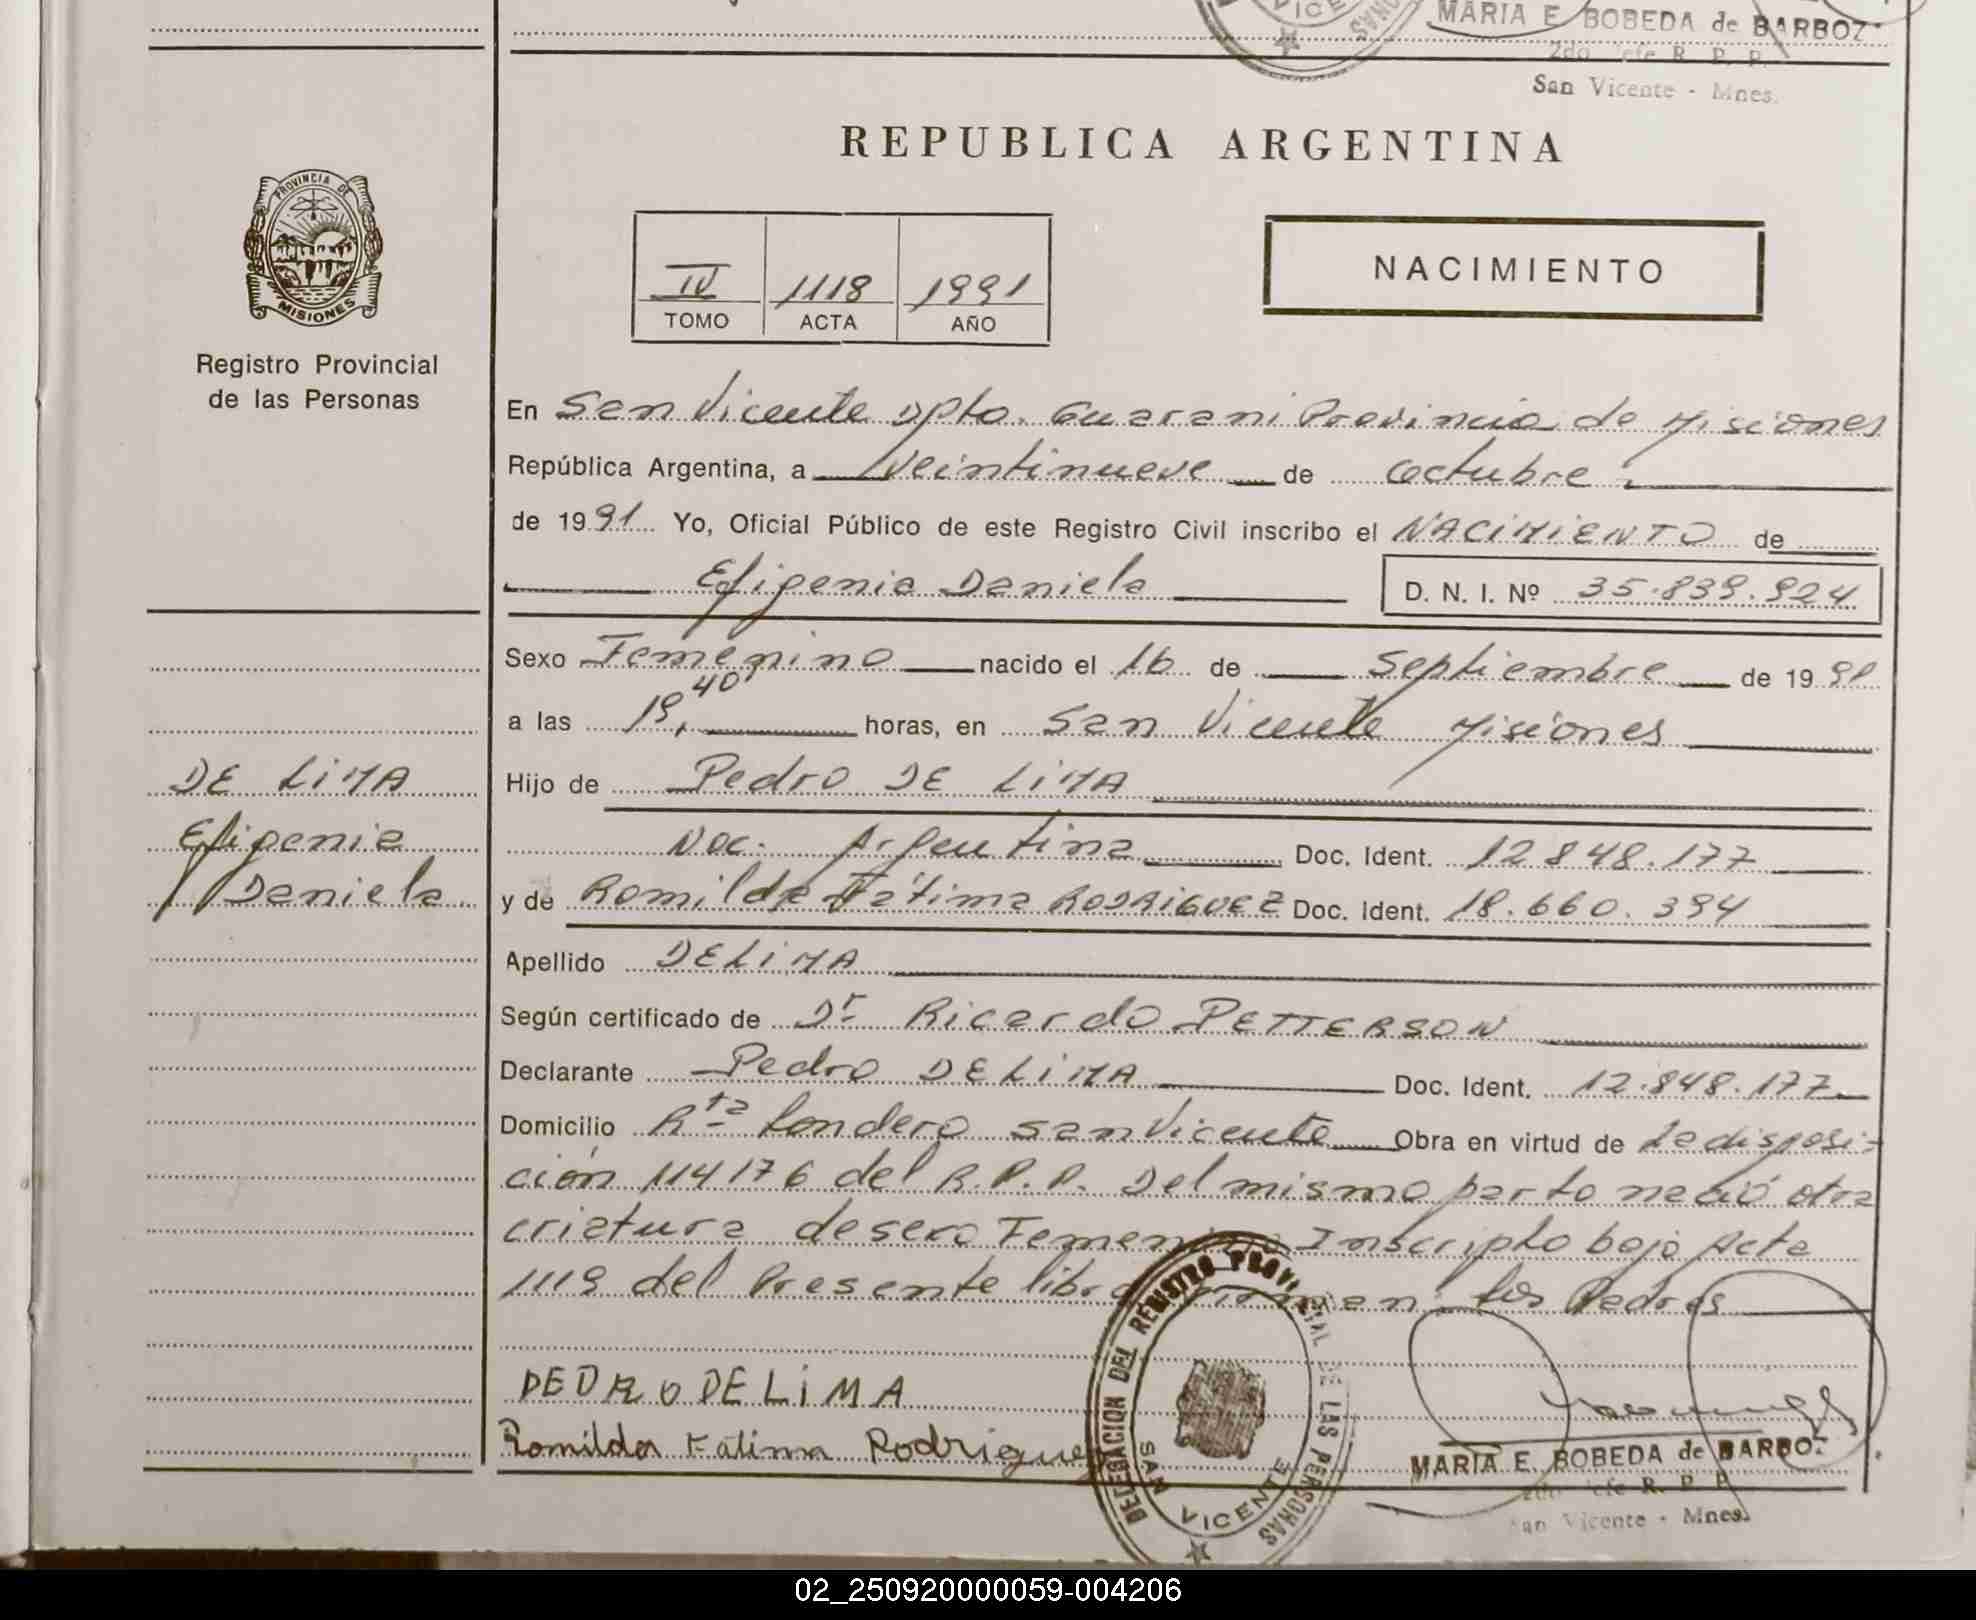 MARIA E. BOBEDA de BARBOZ
2do Jefe R. P. P.
San Vicente - Mnes.
REPUBLICA ARGENTINA
PROVINCIA DE
MISIONES
IV 1118 1991
TOMO ACTA AÑO
NACIMIENTO
Registro Provincial
de las Personas
En San Vicente Dpto. Guarani Provincia de Misiones
República Argentina, a veintinueve de octubre
de 1991 Yo, Oficial Público de este Registro Civil inscribo el NACIMIENTO de
Efigenia Daniela D. N. I. Nº 35.839.924
Sexo Femenino nacido el 16 de Septiembre de 1991
a las 19,40 horas, en San Vicente Misiones
Hijo de Pedro DE LIMA
Nac. Argentina Doc. Ident. 12848.177
y de Romilda Fátima RODRIGUEZ Doc. Ident. 18.660.394
Apellido DE LIMA
Según certificado de Dr Ricardo PETTERSON
Declarante Pedro DE LIMA Doc. Ident. 12.848.177
Domicilio Rta Londero San Vicente Obra en virtud de La disposi-
ción 114176 del R.P.P. Del mismo parto nació otra
criatura de sexo Femenino Inscripto bajo Acta
1119 del Presente libro Firman los Padres
DE LIMA
Efigenia
Daniela
PEDRO DE LIMA
Romilda Fatima Rodriguez
DELEGACION DEL REGISTRO PROVINCIAL DE LAS PERSONAS
SAN VICENTE
MARIA E. BOBEDA de BARBOZ
2do Jefe R. P. P.
San Vicente - Mnes.
02_250920000059-004206